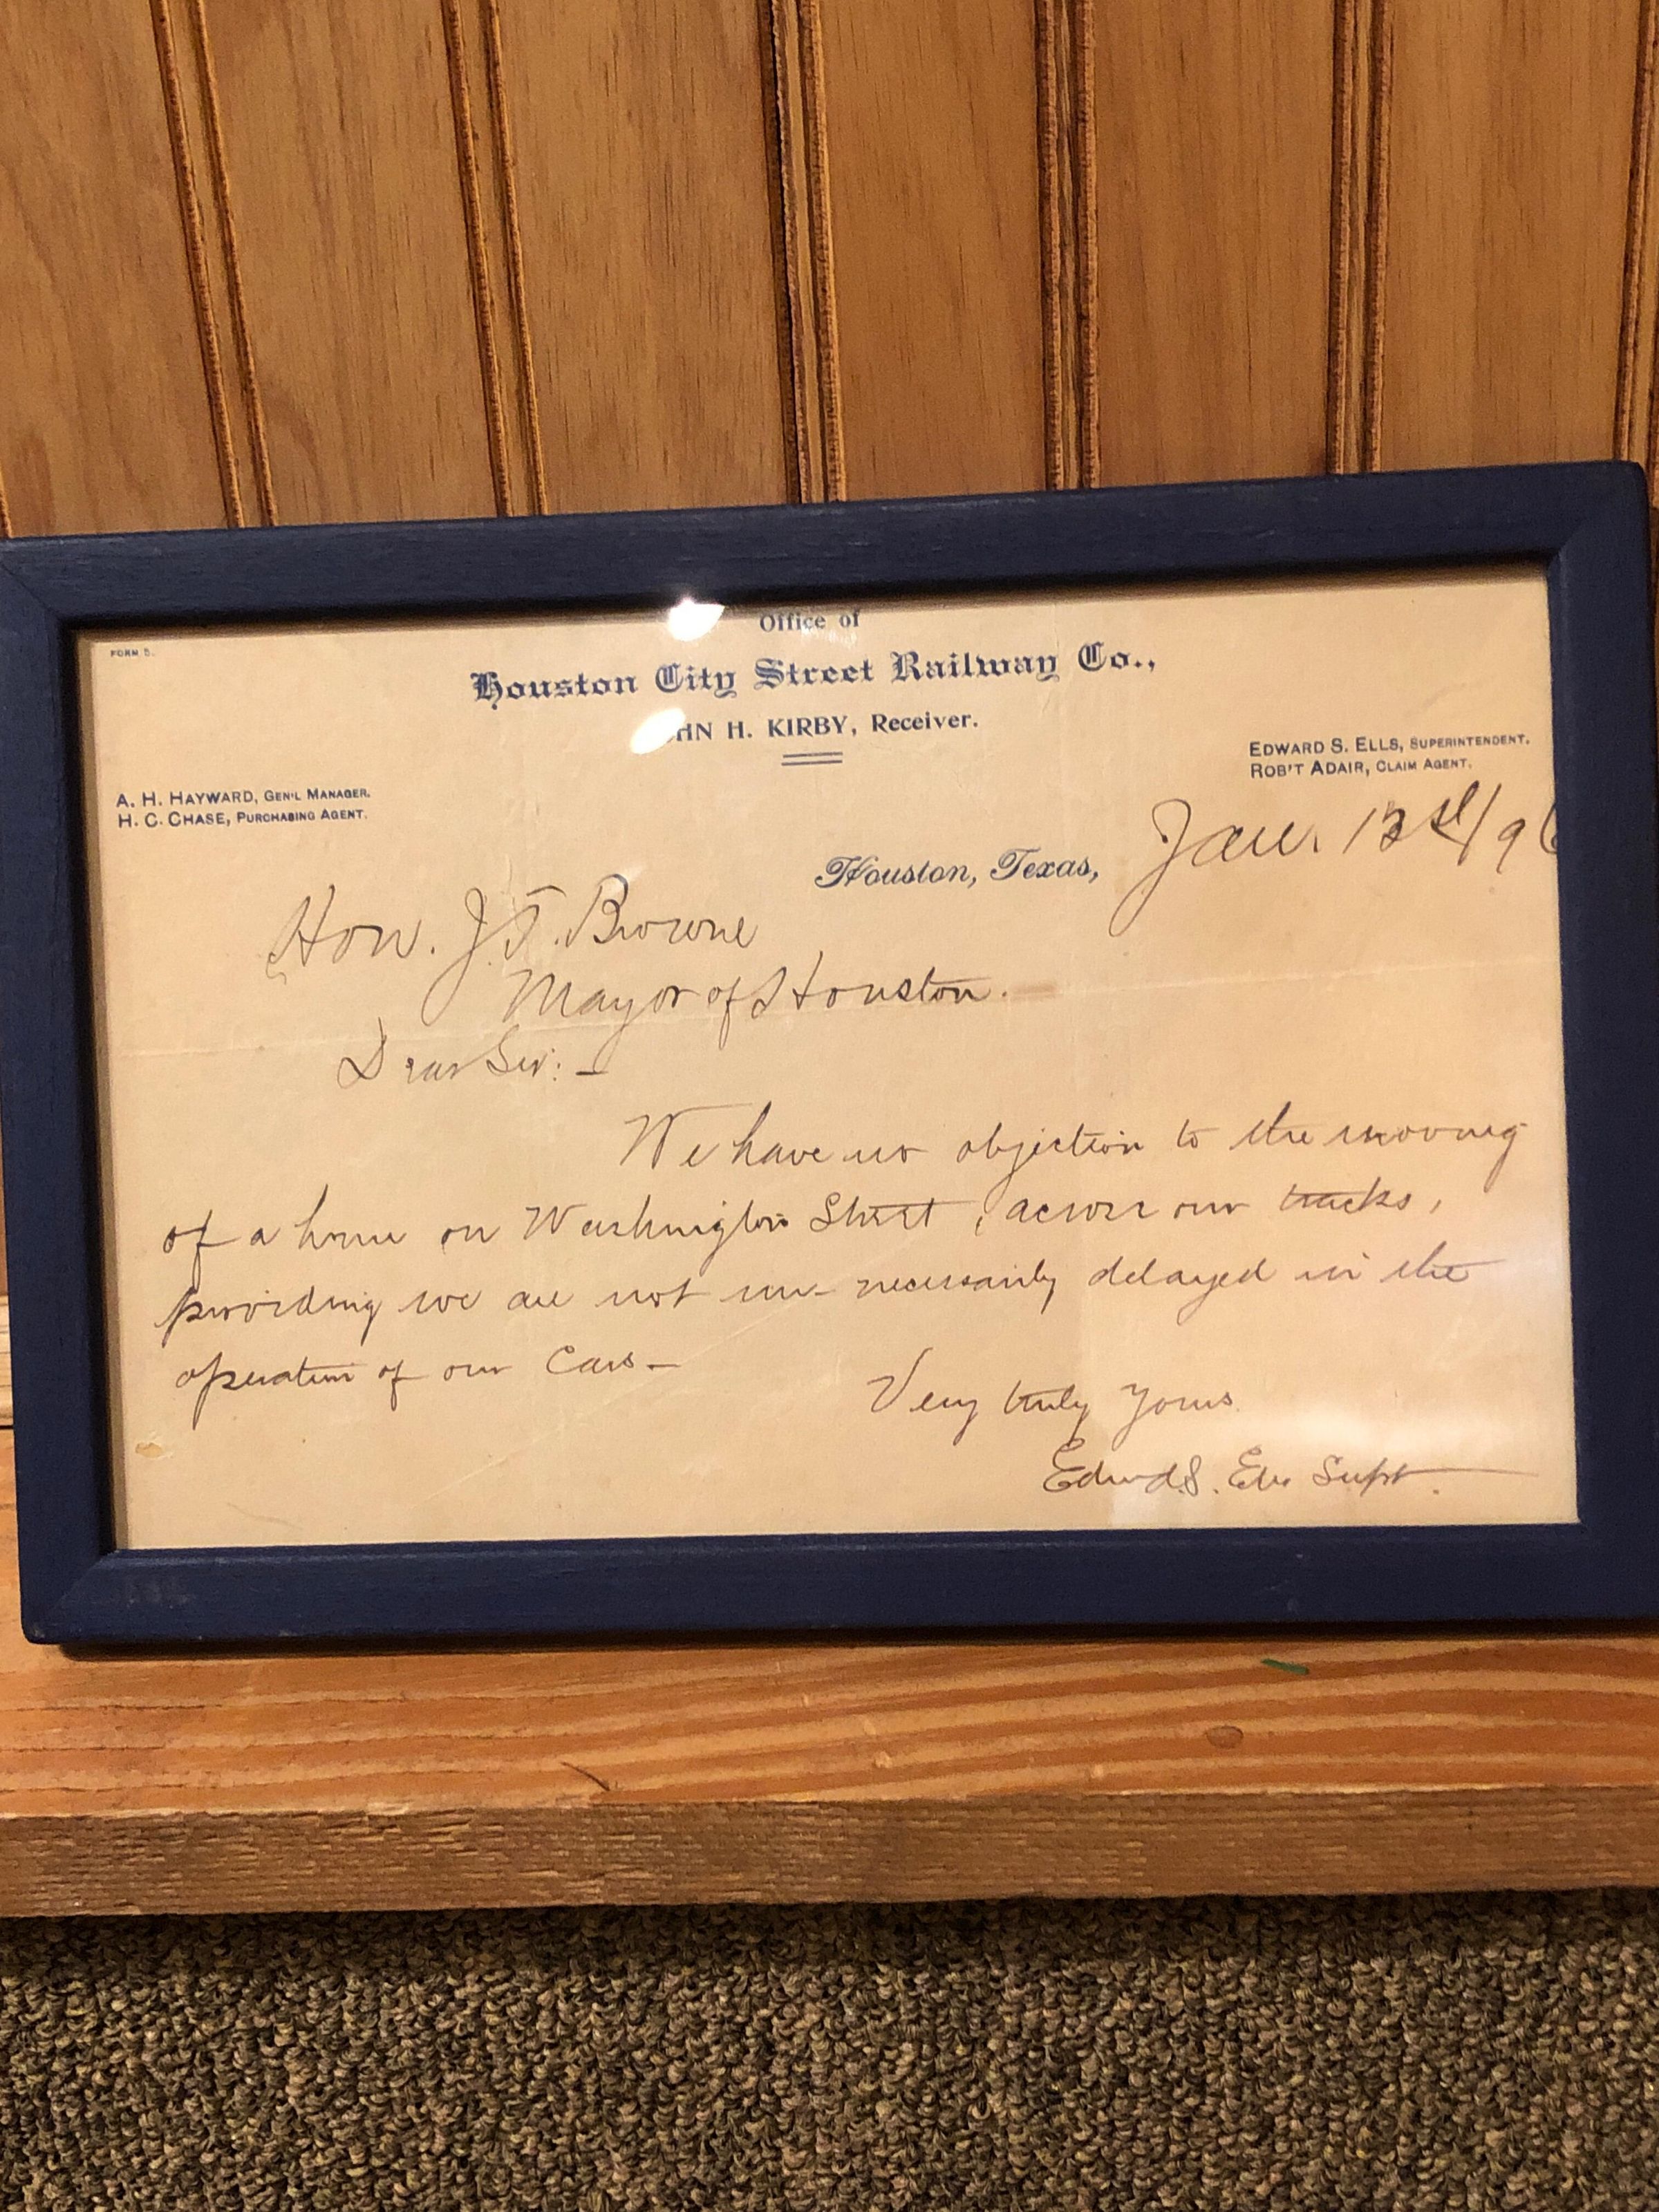 FORM 5.
Office of
Houston City Street Railway Co.,
HN H. KIRBY, Receiver.
EDWARD S. ELLS, SUPERINTENDENT.
ROB'T ADAIR, CLAIM AGENT.
A. H. HAYWARD, GEN'L MANAGER.
H. C. CHASE, PURCHASING AGENT.
Houston, Texas, Jan. /96
Hon. J. T. Browne
Mayor of Houston.
Dear Sir: —
We have no objection to the moving
of a house on Washington Street, across our tracks,
providing we are not un- necessarily delayed in the
operation of our Cars —
Very truly yours
Edward S. Ells Supt.